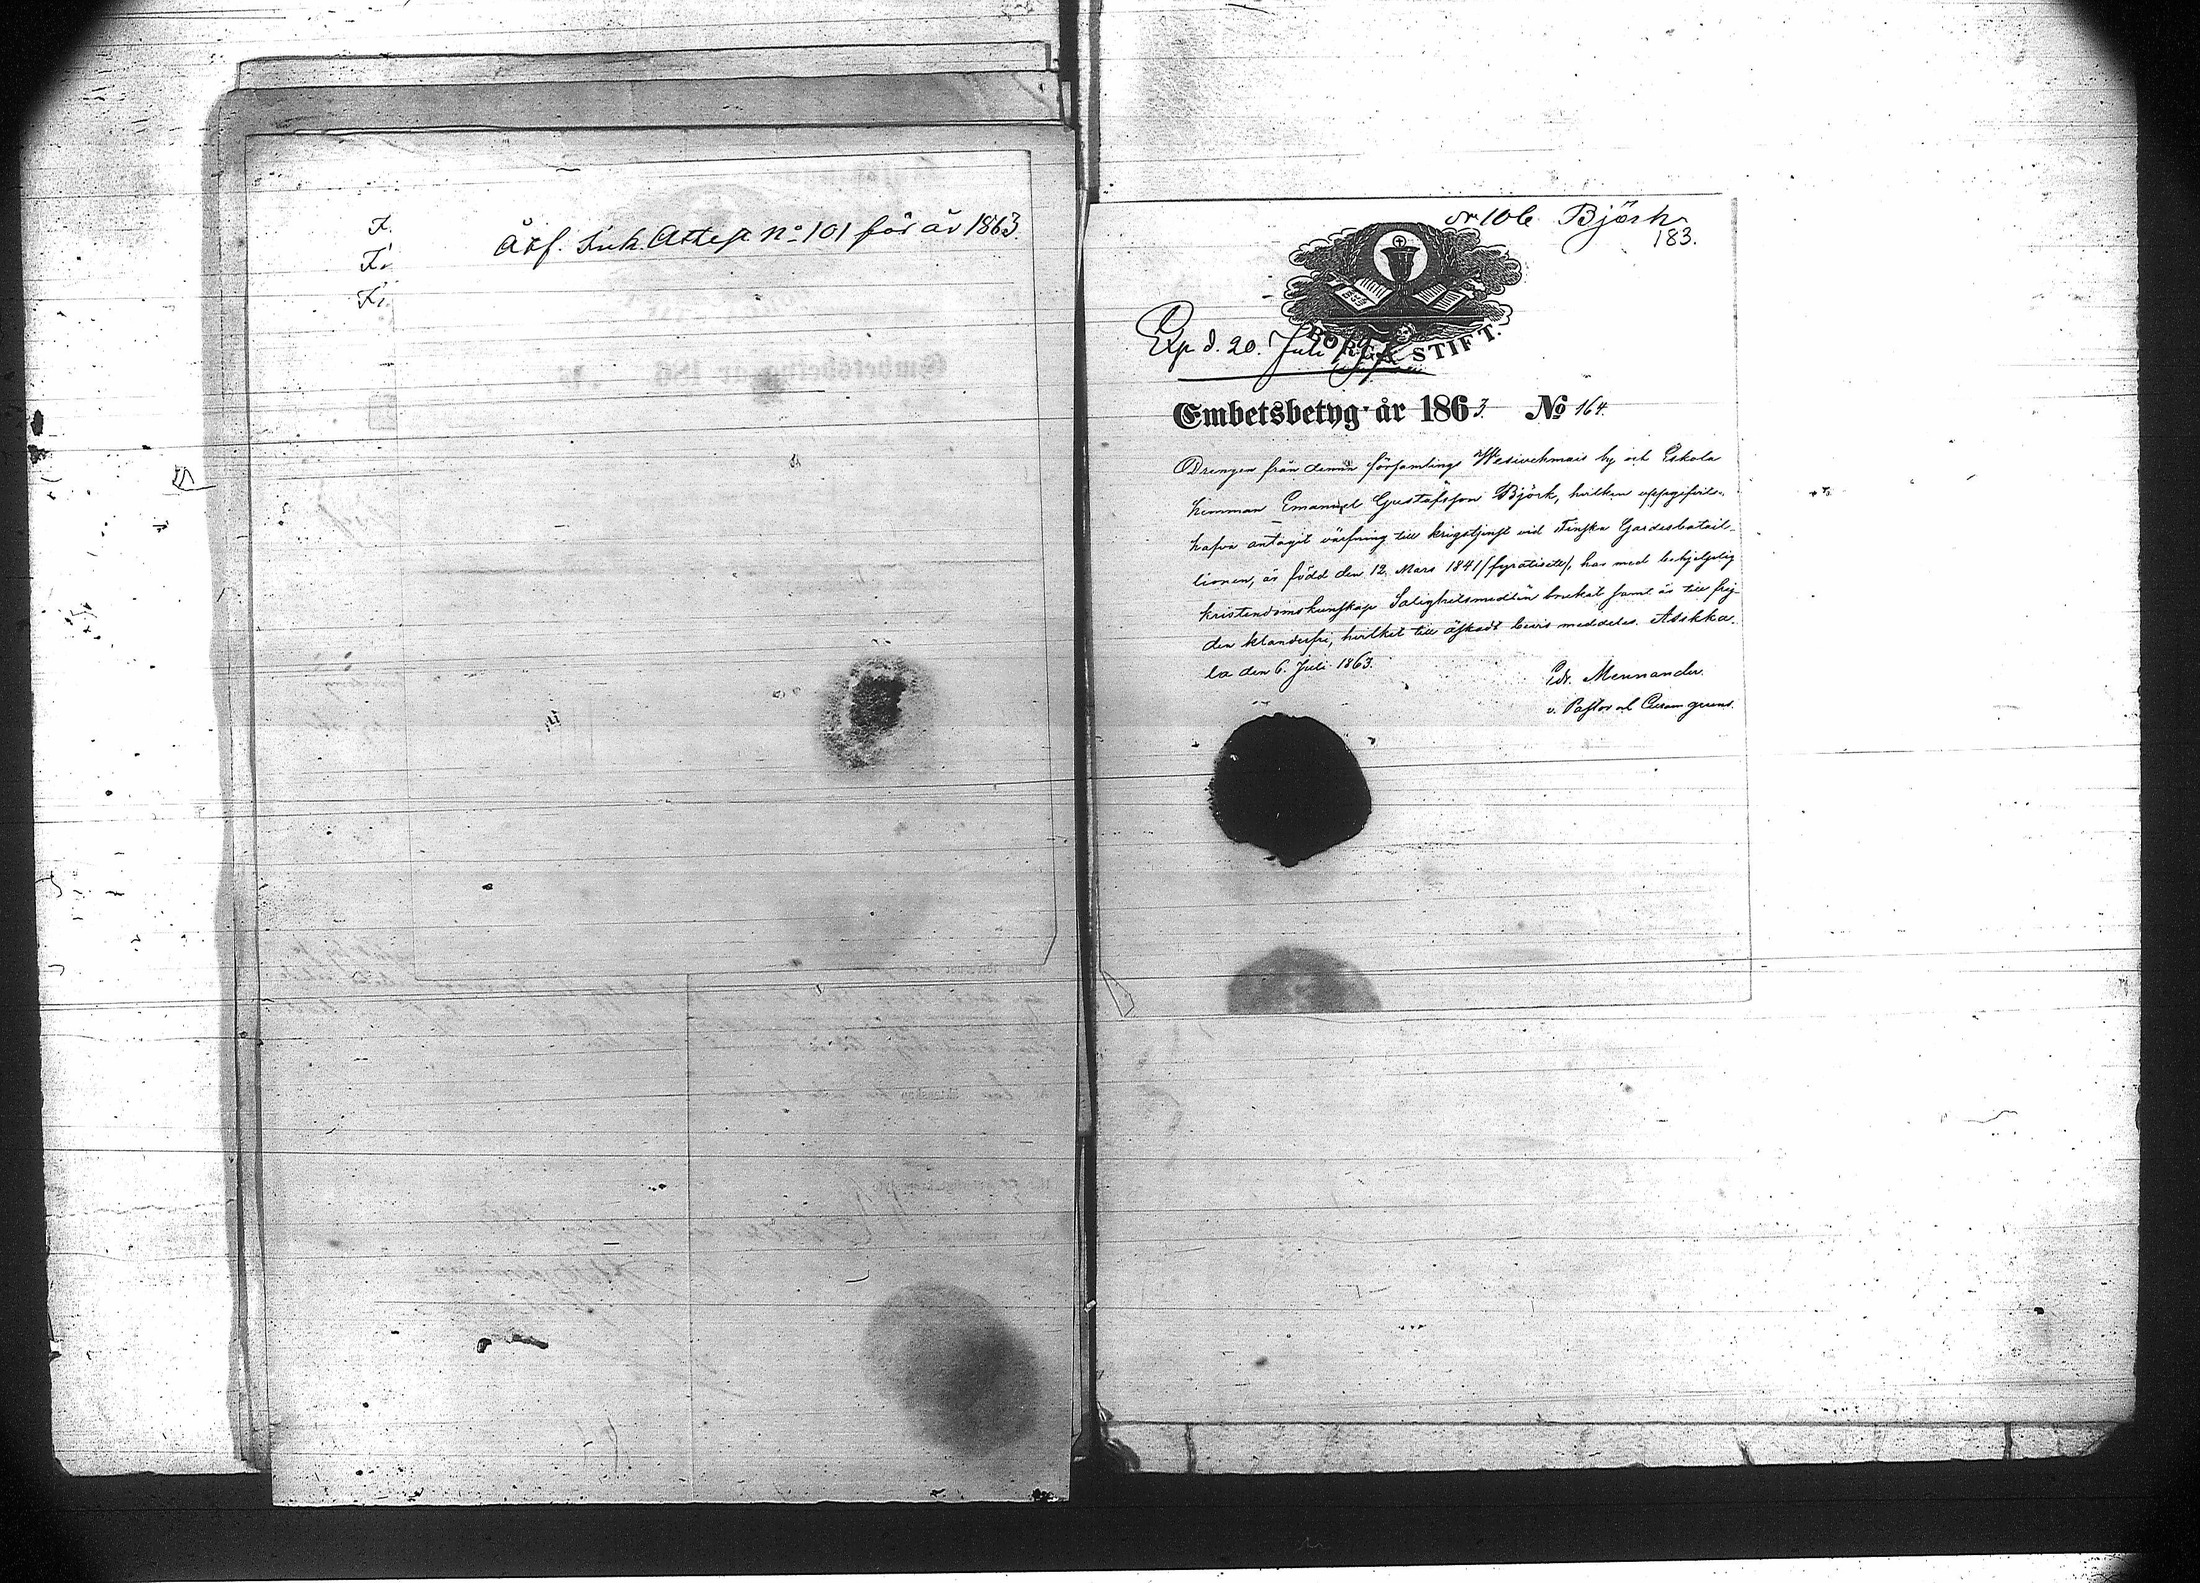 F.
F.
F.
Åkf. Ink. Attest No 101 för år 1863.
nr 106 Björk
183.
BORGÅ STIFT.
Exp d. 20. Juli
Embetsbetyg år 1863. No 164.
Drengen från denna församlings Wesivehmais by och Eskola
hemman Emanuel Gustafsson Björk, hvilken uppgifvits
hafva antagit värfning till krigstjenst vid Finska Gardesbatail-
lionen, är född den 12. Mars 1841 /fyratioett/, har med behjelplig
kristendomskunskap Salighetsmedlen brukat samt är till frej-
den klanderfri, hvilket till äskadt bevis meddelas. Asikka-
la den 6. Juli 1863.
Edv. Mennander.
v. Pastor et Curam gerens.